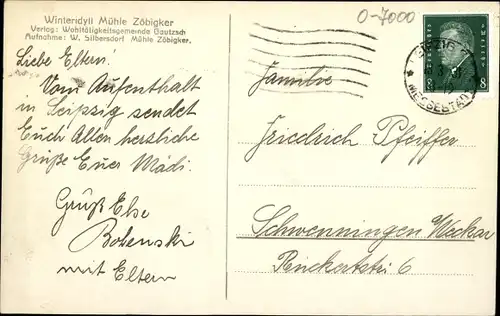 Winteridyll Mühle Zöbigker
Verlag: Wohltätigkeitsgemeinde Gautzsch
Aufnahme: W. Silbersdorf Mühle Zöbigker.
O-7000
8 8
LEIPZIG
MESSESTADT
Liebe Eltern!
Vom Aufenthalt
in Leipzig sendet
Euch Allen herzliche
Grüße Euer Mädi.
Gruß Else
Bobenski
mit Eltern
Familie
Friedrich Pfeiffer
Schwenningen Neckar
6